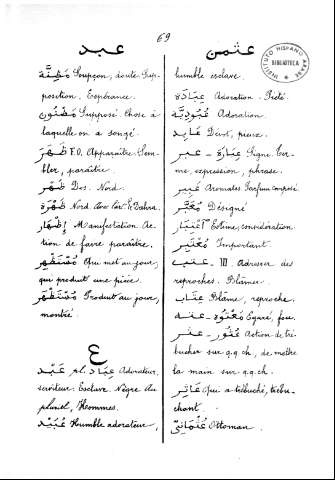 69
عبد
مَظِنَّة Soupçon, doute. Sup-
position. Espérance.
مَظْنُون Supposé. Chose à
laquelle on a songé.
ظَهَرَ F.O. Apparaître. Sem-
bler, paraître.
ظَهْر Dos. Nord.
إِظْهَار Manifestation. Ac-
tion de faire paraître.
مُسْتَظْهِر Qui met au jour,
qui produit une pièce.
مُسْتَظْهَر Produit au jour,
montré
ع
عَبْد pl. عِبَاد Adorateur,
serviteur. Esclave. Nègre. Au
pluriel, Hommes.
عُبَيْد Humble adorateur,
عثمن
humble esclave.
عِبَادَة Adoration. Piété.
عُبُودِيَّة Adoration
عَابِد Dévot, pieux.
عِبَارَة - عبر Signe. Ter-
me, expression, phrase.
عَبِير Aromates. Parfum composé.
Désigné
اِعْتِبَار Estime, considération
مُعْتَبَر Important
عتب III. Adresser des
reproches. Blâmer.
عِتَاب Blâme, reproche.
مَعْتُوه - عته Egaré, fou.
عُثُور - عثر Action de tré-
bucher sur q.q.ch., de mettre
la main sur q.q.ch.
عَاثِر Qui a trébuché, trébu-
chant.
عُثْمَانِيّ Ottoman.
INSTITUTO HISPANO ARABE
BIBLIOTECA